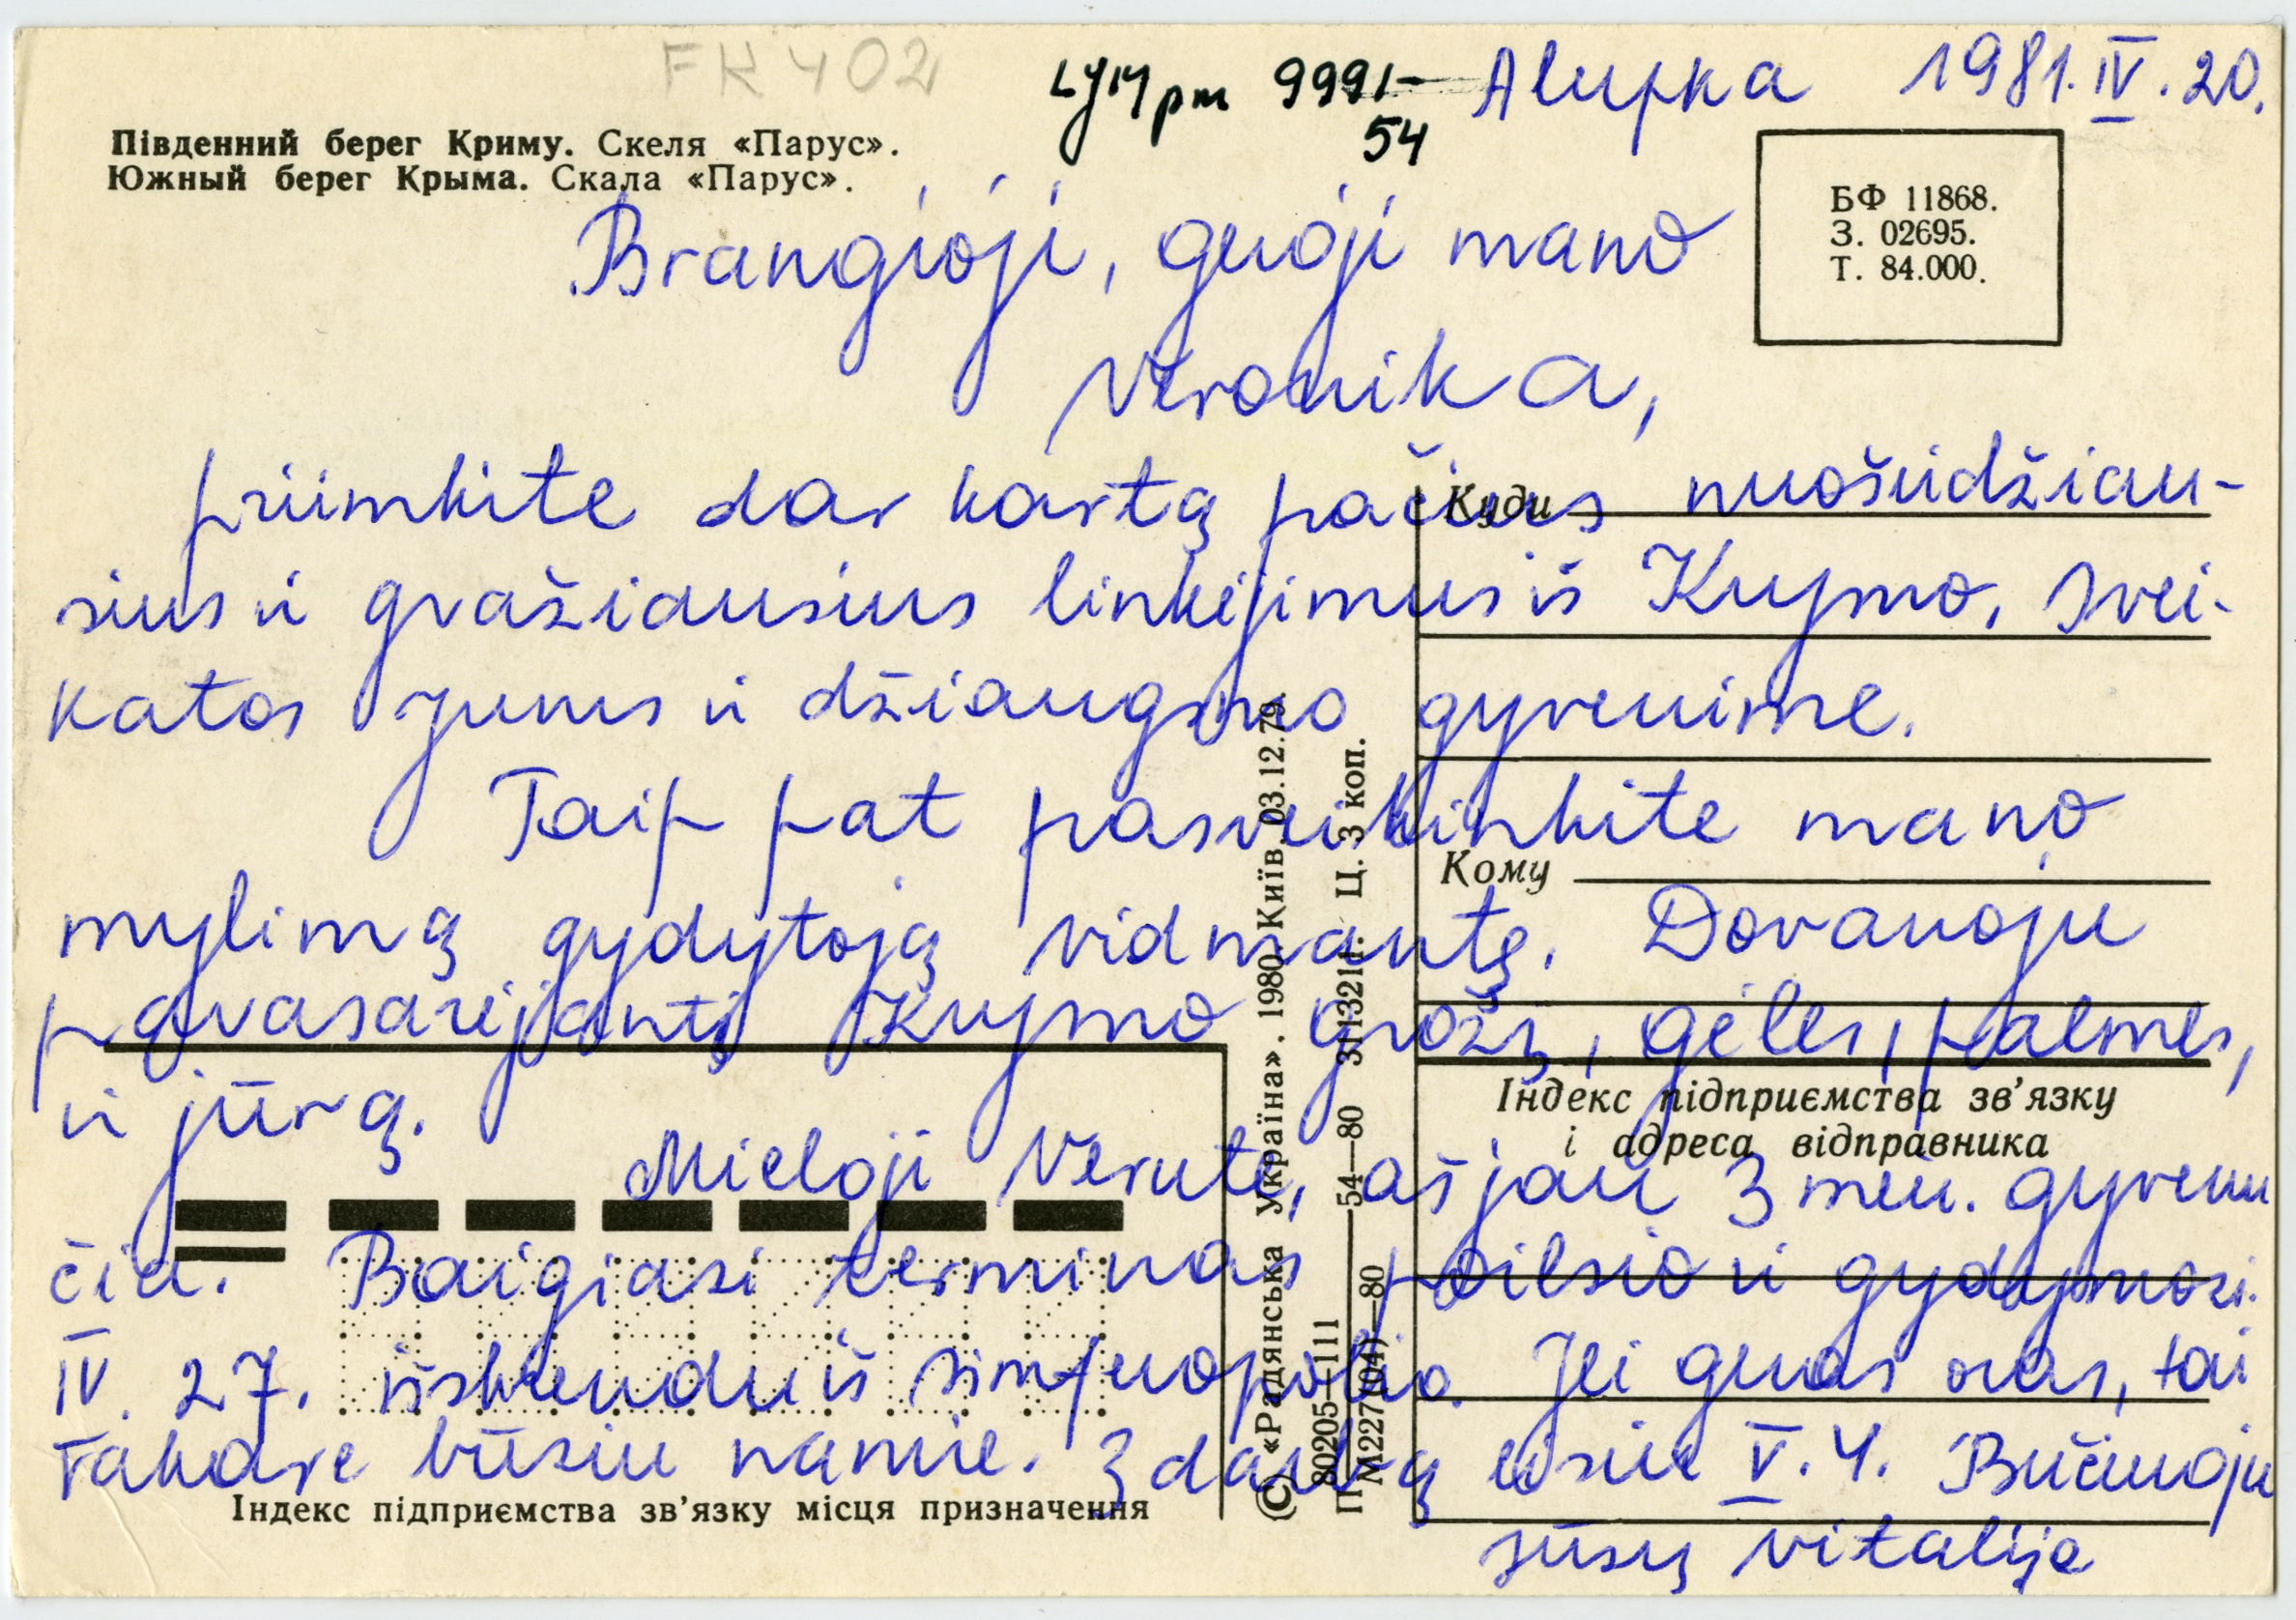 FK 402
LJM pm 9991-
54
Alupka 1981.IV.20.
Південний берег Криму. Скеля «Парус».
Южный берег Крыма. Скала «Парус».
БФ 11868.
З. 02695.
Т. 84.000.
Brangioji, geroji mano
Veronika,
priimkite dar kartą pačius nuoširdžiau-
sius ir gražiausius linkėjimus iš Krymo, svei-
katos Jums ir džiaugsmo gyvenime.
Taip pat pasveikinkite mano
mylimą gydytoją Vidmantę. Dovanoju
pavasarėjantį Krymo grožį, gėles, palmes,
ir jūrą.
Mieloji Verute, aš jau 3 mėn. gyvenu
čia. Baigiasi terminas poilsio ir gydymosi.
IV. 27. išskrendu iš Simferopolio. Jei geras oras, tai
vakare būsiu namie. Į darbą eisiu V.4. Bučiuoju
Jūsų Vitalija
Куди
Кому
Індекс підприємства зв’язку
і адреса відправника
Індекс підприємства зв’язку місця призначення
© «Радянська Україна». 1980. Київ. 03.12.79.
80205—111
М227(04)—80
54—80 3113211. Ц. 3 коп.